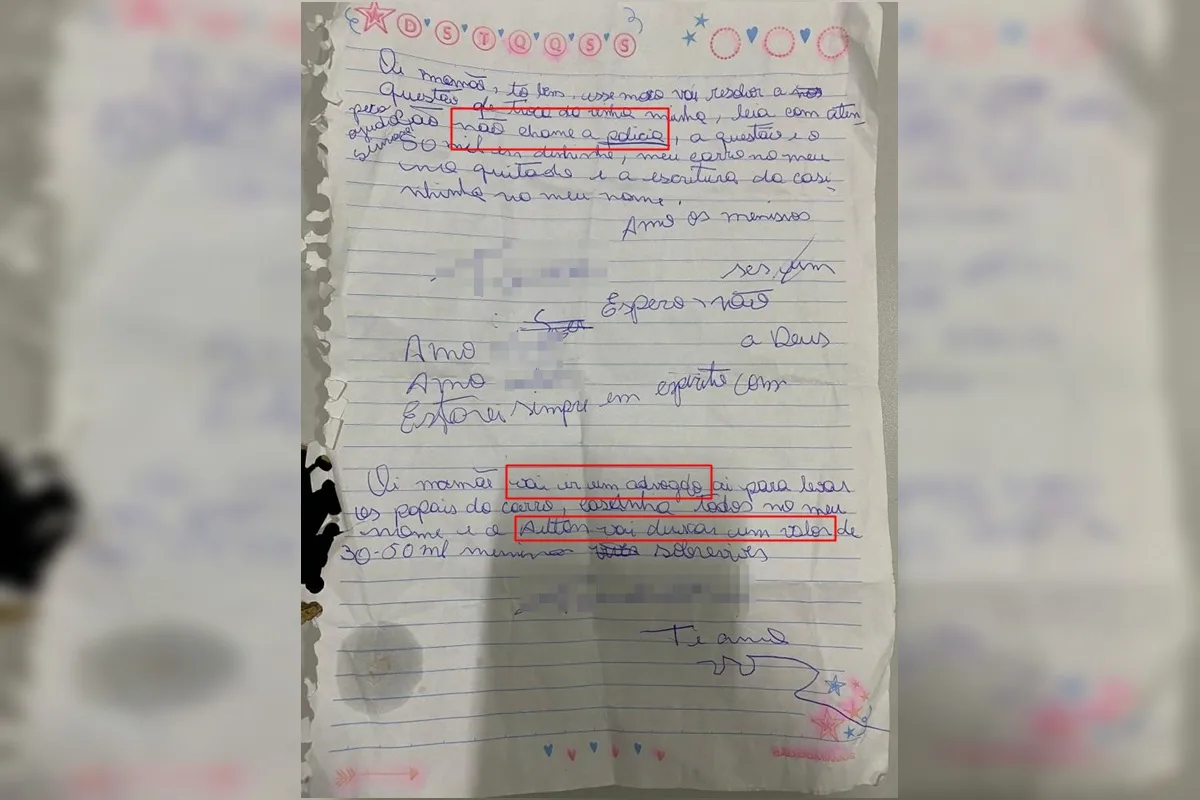 D S T Q Q S S
Oi mamãe, tô bem, esse moço vai resolver a
questão de troca da minha, leia com aten
ção não chame a policia, a questão e o
50 mil em dinheiro, meu carro no meu
nome quitado e a escritura da casi-
nhinha no meu nome.
Amo os meninos
ses um
Espero não
a Deus
Amo
Amo
Estarei simpre em espirito com
Oi mamãe vai ir um advogdo ai para levar
os papais do carro, casinha todos no meu
nome e o Ailton vai deixar um valor de
30-50 mil
Te amo